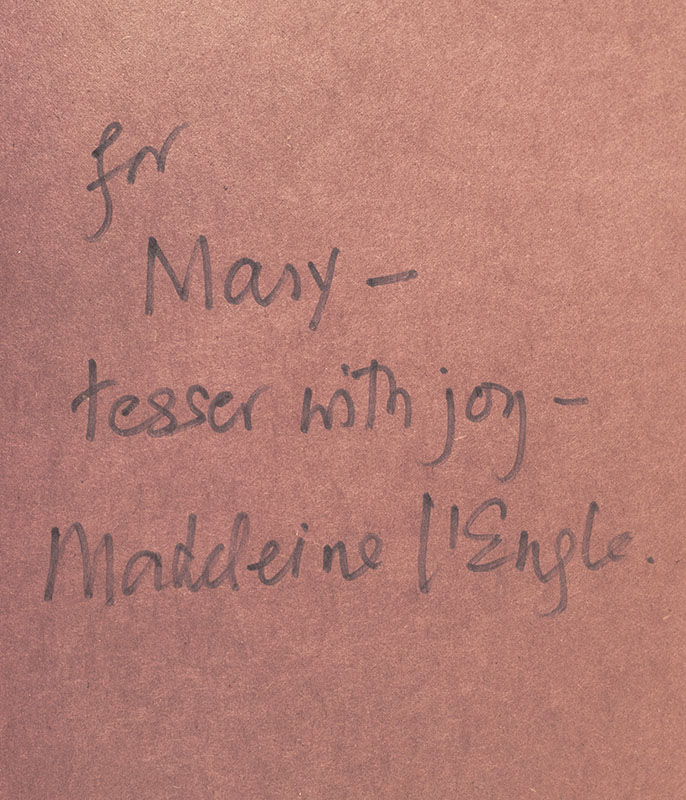 for
Mary –
tesser with joy –
Madeleine l'Engle.